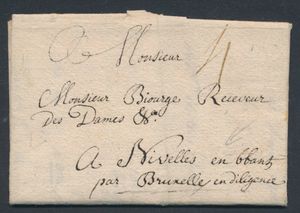 Monsieur
4
Monsieur Biourge Receveur
des Dames &a
A Nivelles en bbant
par Bruxelle en diligence